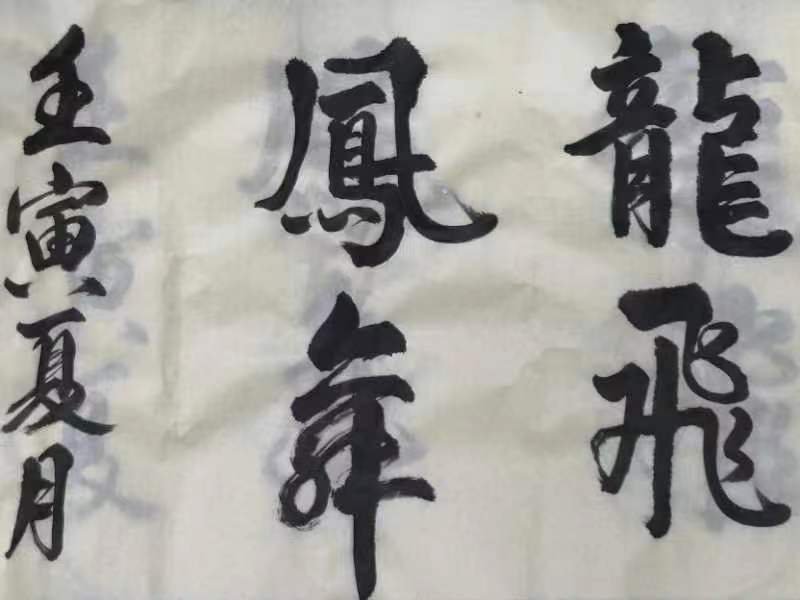 龍飛
鳳舞
壬寅夏月